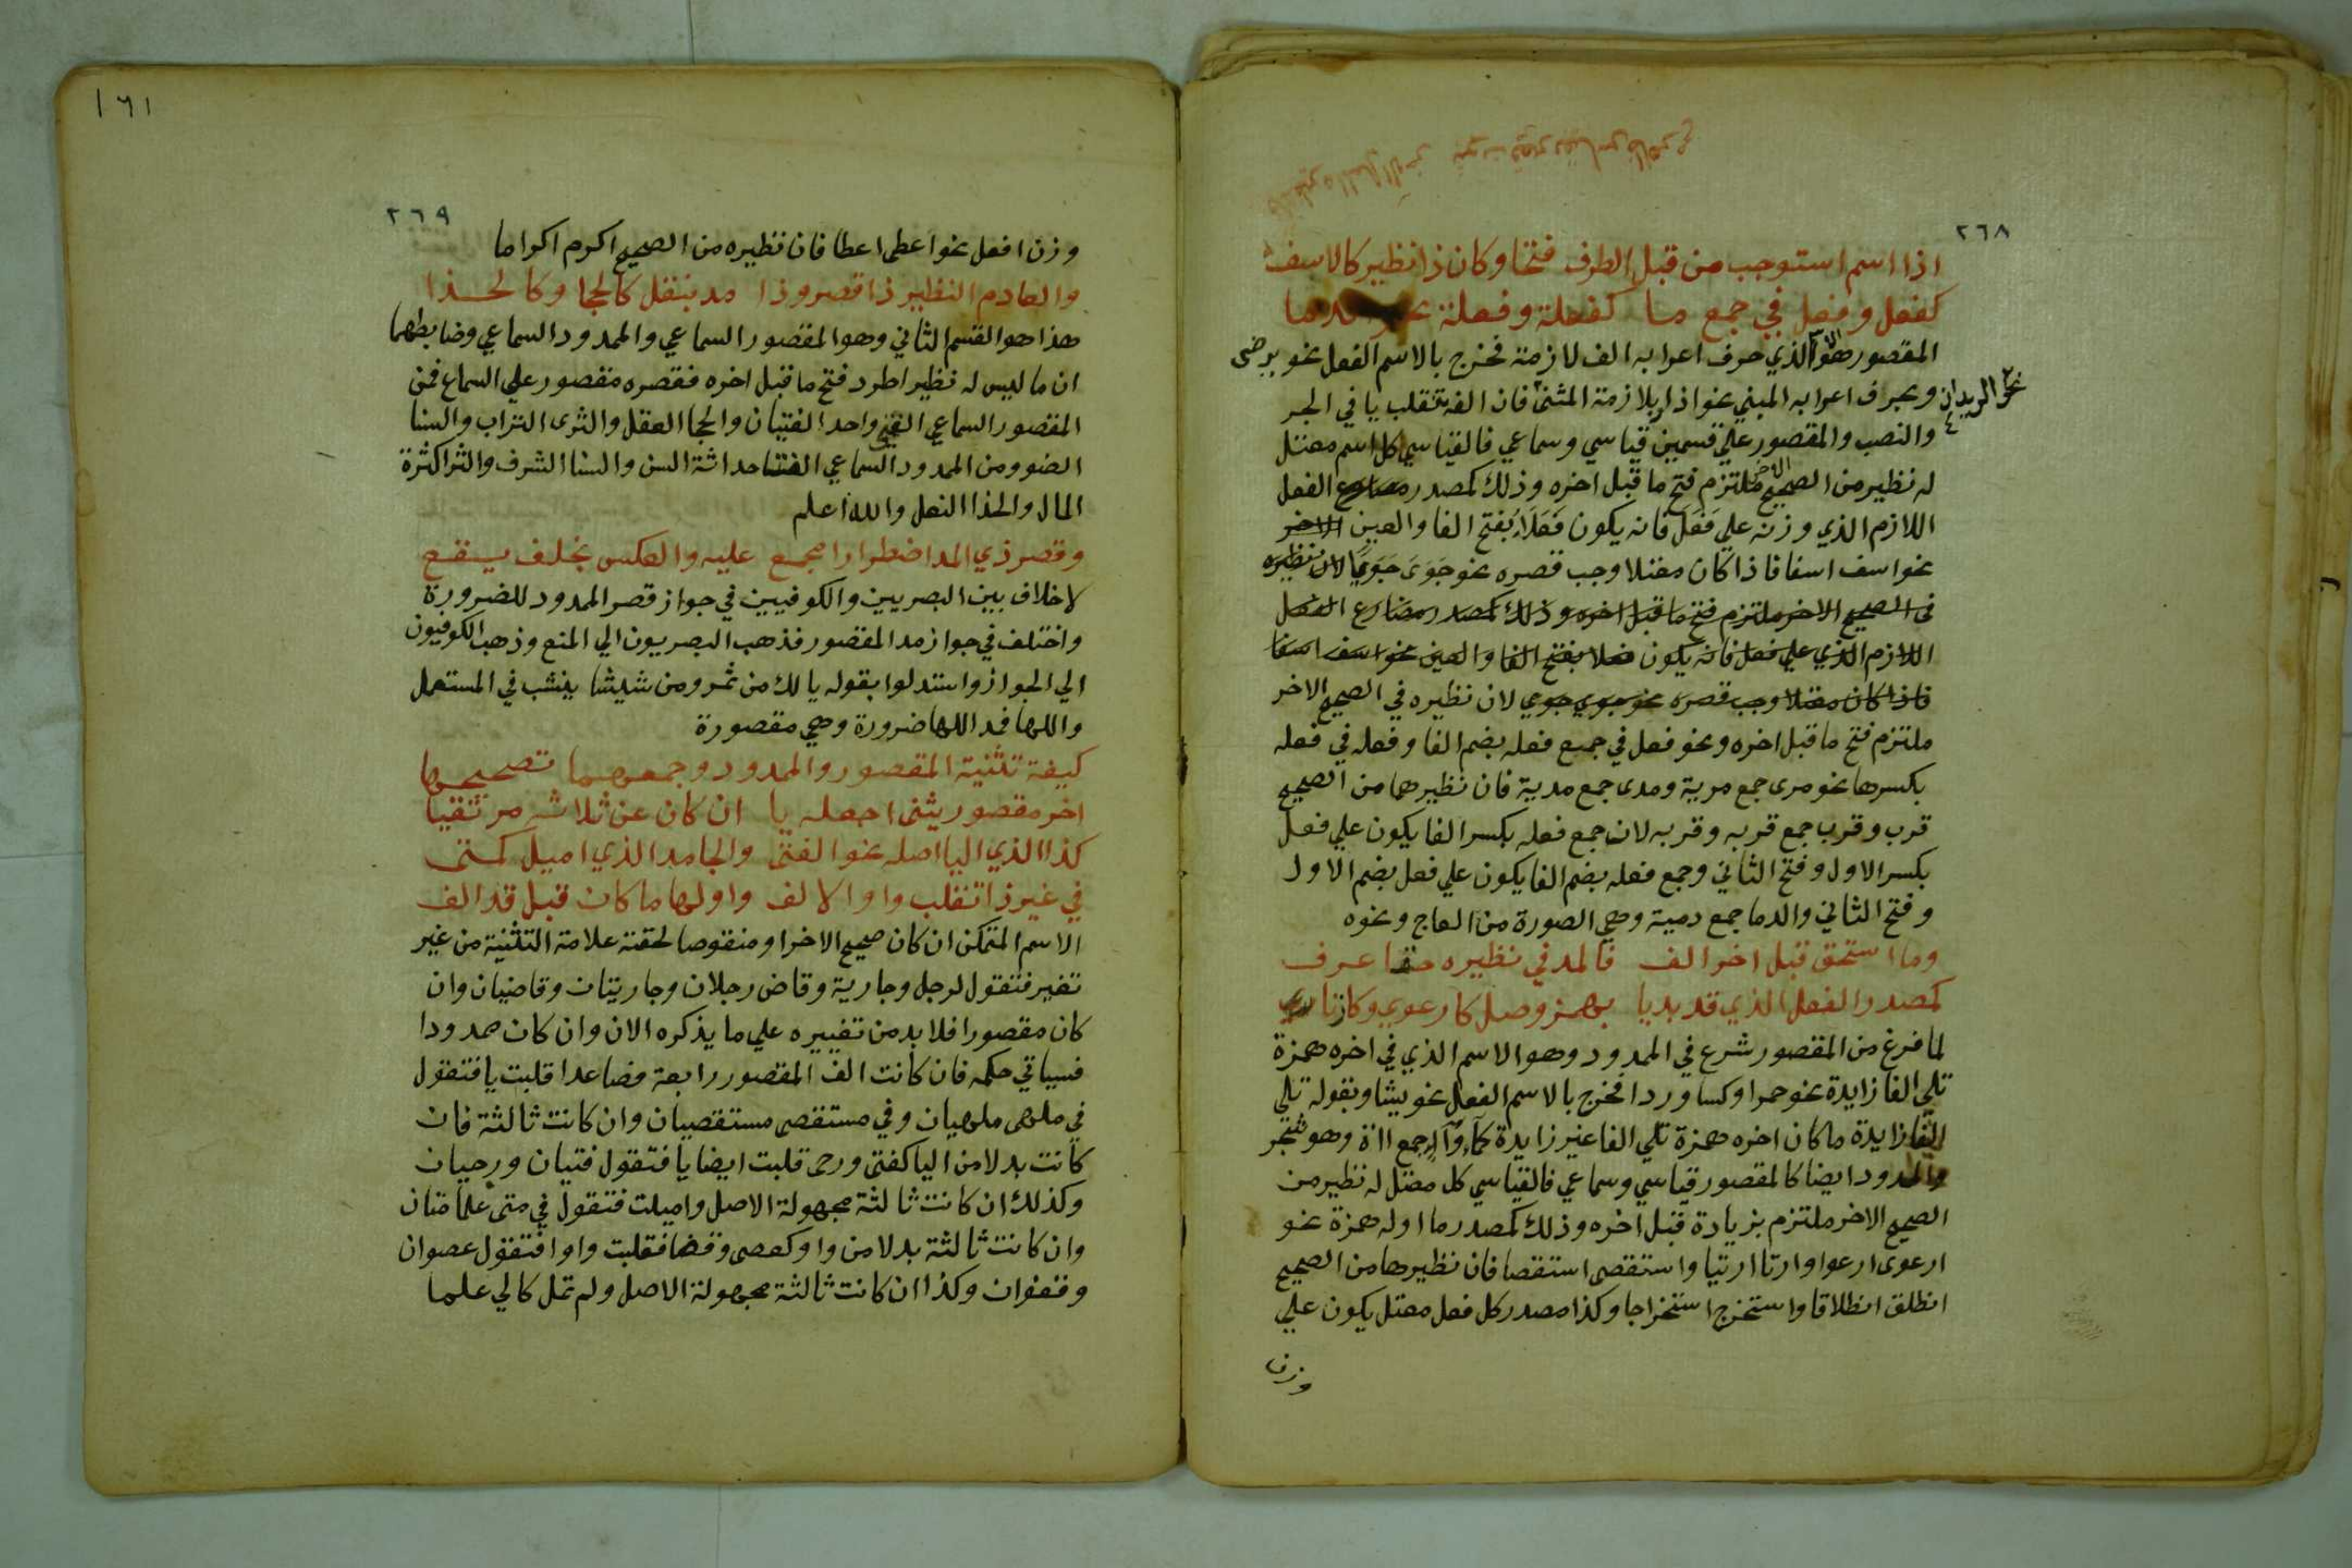 ٢٦٨
اذا اسم استوجب من قبل الطرف فتحا وكان ذا نظير كالاسف
كفعل وفعل في جمع ما كفعلة وفعلة نحو الدما
المقصور هو الاسم الذي حرف اعرابه الف لازمة فخرج بالاسم الفعل نحو يرضى
وبحرف اعرابه المبني نحو اذا وبلازمة المثنى فان الفه تنقلب يا في الجر
نحو الزيدان
والنصب والمقصور علي قسمين قياسي وسماعي فالقياسي كل اسم معتل
له نظير من الصحيح الاخر ملتزم فتح ما قبل اخره وذلك كمصدر مضارع الفعل
اللازم الذي وزنه علي فَعَلَ فانه يكون فَعَلاً بفتح الفا والعين الاخر
نحو اسف اسفا فاذا كان معتلا وجب قصره نحو جَوَىَ جَوَىً لان نظيره
في الصحيح الاخر ملتزم فتح ما قبل اخره وذلك كمصدر مضارع الفعل
اللازم الذي علي فعل فانه يكون فعلا بفتح الفا والعين نحو اسف اسفا
فاذا كان معتلا وجب قصره نحو جوي جوي لان نظيره في الصحيح الاخر
ملتزم فتح ما قبل اخره ونحو فعل في جميع فعله بضم الفا وفعله في فعله
بكسرها نحو مرى جمع مرية ومدى جمع مدية فان نظيرهما من الصحيح
قرب وقرب جمع قربه وقربه لان جمع فعله بكسر الفا يكون علي فعل
بكسر الاول وفتح الثاني وجمع فعله بضم الفا يكون علي فعل بضم الاول
وفتح الثاني والدما جمع دمية وهي الصورة من العاج ونحوه
وما استحق قبل اخر الف فالمد في نظيره حتما عرف
كمصدر الفعل الذي قد بديا بهمز وصل كارعوي وكارتاي
لما فرغ من المقصور شرع في الممدود وهو الاسم الذي في اخره همزة
تلي الفا زايدة نحو حمرا وكسا وردا فخرج بالاسم الفعل نحو يشا وبقوله تلي
الفا زايدة ما كان اخره همزة تلي الفا غير زايدة كما وآء جمع ااة وهو شجر
والممدود ايضا كالمقصور قياسي وسماعي فالقياسي كل معتل له نظير من
الصحيح الاخر ملتزم بزيادة قبل اخره وذلك كمصدر ما اوله همزة نحو
ارعوى ارعوا وارتا ارتيا واستقصى استقصا فان نظيرها من الصحيح
انطلق انطلاقا واستخرج استخراجا وكذا مصدر كل فعل معتل يكون علي
وزن
١٦١
٢٦٩
وزن افعل نحو اعطى اعطا فان نظيره من الصحيح اكرم اكراما
والعادم النظير ذا قصر وذا مد بنقل كالحجا وكالحذا
هذا هو القسم الثاني وهو المقصور السماعي والممدود السماعي وضابطهما
ان ما ليس له نظير اطرد فتح ما قبل اخره فقصره مقصور علي السماع فمن
المقصور السماعي الفتي واحد الفتيان والحجا العقل والثرى التراب والسنا
الضوو من الممدود السماعي الفتا حداثة السن والسنا الشرف والثرا كثرة
المال والحذا النعل والله اعلم
وقصر ذي المد اضطرارا مجمع عليه والعكس بخلف يقع
لا خلاف بين البصريين والكوفيين في جواز قصر الممدود للضرورة
واختلف في جواز مد المقصور فذهب البصريون الي المنع وذهب الكوفيون
الي الجواز واستدلوا بقوله يا لك من تمر ومن شيشا ينشب في المستعل
واللها فمد اللها ضرورة وهي مقصورة
كيفة تثنية المقصور والممدود وجمعهما تصحيحها
اخر مقصور يثنى اجعله يا ان كان عن ثلاثه مرتقيا
كذا الذي اليا اصله نحو الفتى والجامد الذي اميل كمتى
في غير ذا تقلب واوا الالف واولها ما كان قبل قد الف
الاسم المتمكن ان كان صحيح الاخر او منقوصا لحقته علامة التثنية من غير
تغير فتقول لرجل وجارية وقاض رجلان وجاريتان وقاضيان وان
كان مقصورا فلا بد من تغييره علي ما يذكره الان وان كان ممدودا
فسياتي حكمه فان كانت الف المقصور رابعة فصاعدا قلبت يا فتقول
في ملهى ملهيان وفي مستقصى مستقصيان وان كانت ثالثة فان
كانت بدلا من اليا كفتى ورحى قلبت ايضا يا فتقول فتيان ورحيان
وكذلك ان كانت ثالثة مجهولة الاصل واميلت فتقول في متى علما متيان
وان كانت ثالثة بدلا من واو كعصى وقفا فقلبت واوا فتقول عصوان
وقفوان وكذا ان كانت ثالثة مجهولة الاصل ولم تمل كالي علما